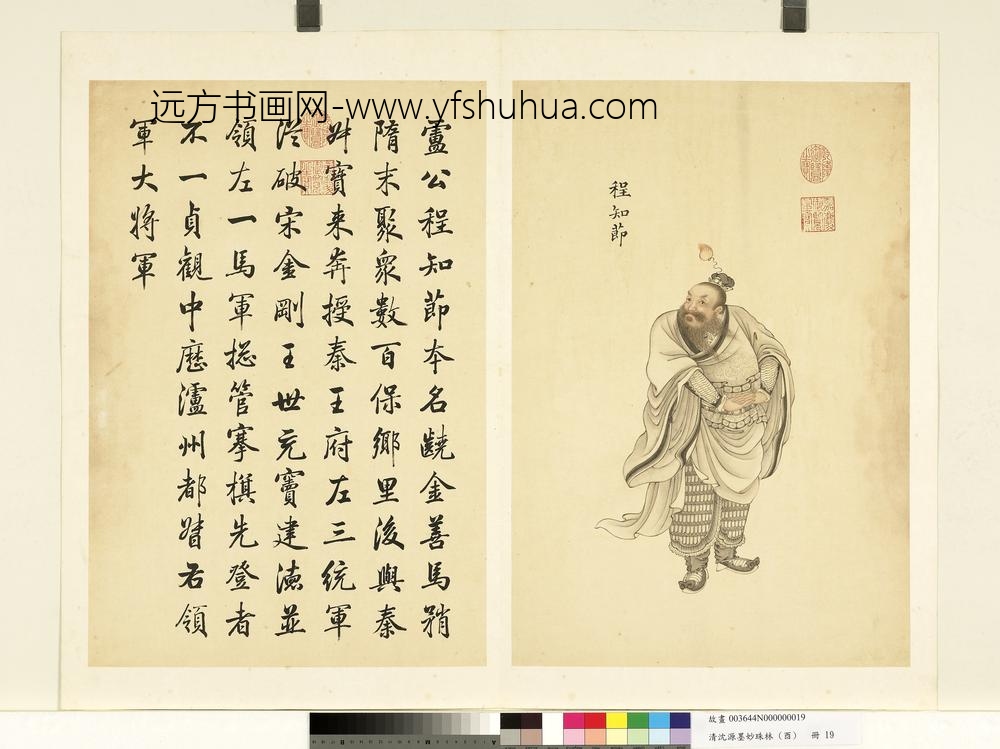 远方书画网-www.yfshuhua.com
程知節
盧公程知節本名齩金善馬矟
隋末聚衆數百保鄉里後與秦
叔寶来奔授秦王府左三統軍
從破宋金剛王世充竇建德並
領左一馬軍捴管搴旗先登者
不一貞觀中歷瀘州都督右領
軍大將軍
故畫 003644N000000019
清沈源墨妙珠林(酉) 冊 19